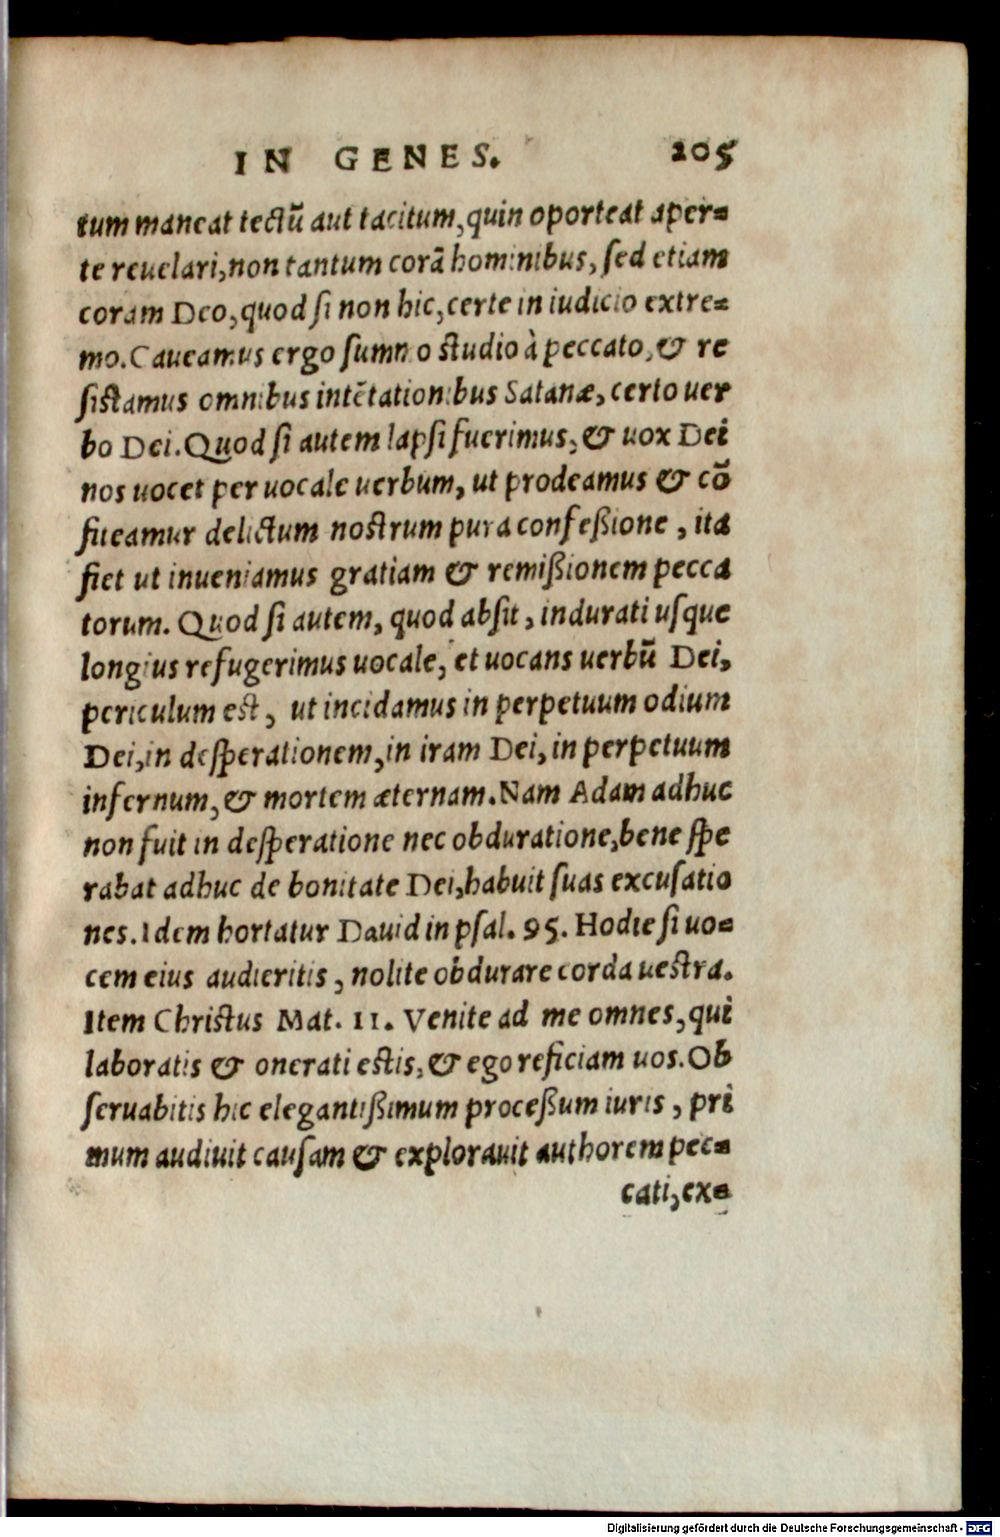 IN GENES. 205
tum maneat tectū aut tacitum, quin oporteat aper=
te reuelari, non tantum corā hominibus, sed etiam
coram Deo, quod si non hic, certe in iudicio extre=
mo. Caueamus ergo summo studio à peccato, & re
sistamus omnibus intētationibus Satanæ, certo uer
bo Dei. Quod si autem lapsi fuerimus, & uox Dei
nos uocet per uocale uerbum, ut prodeamus & cō
fiteamur delictum nostrum pura confeßione, ita
fiet ut inueniamus gratiam & remißionem pecca
torum. Quod si autem, quod absit, indurati usque
longius refugerimus uocale, et uocans uerbū Dei,
periculum est, ut incidamus in perpetuum odium
Dei, in desperationem, in iram Dei, in perpetuum
infernum, & mortem æternam. Nam Adam adhuc
non fuit in desperatione nec obduratione, bene spe
rabat adhuc de bonitate Dei, habuit suas excusatio
nes. Idem hortatur Dauid in psal. 95. Hodie si uo=
cem eius audieritis, nolite obdurare corda uestra.
Item Christus Mat. 11. Venite ad me omnes, qui
laboratis & onerati estis, & ego reficiam uos. Ob
seruabitis hic elegantißimum proceßum iuris, pri
mum audiuit causam & explorauit authorem pec=
cati, ex=
Digitalisierung gefördert durch die Deutsche Forschungsgemeinschaft - DFG